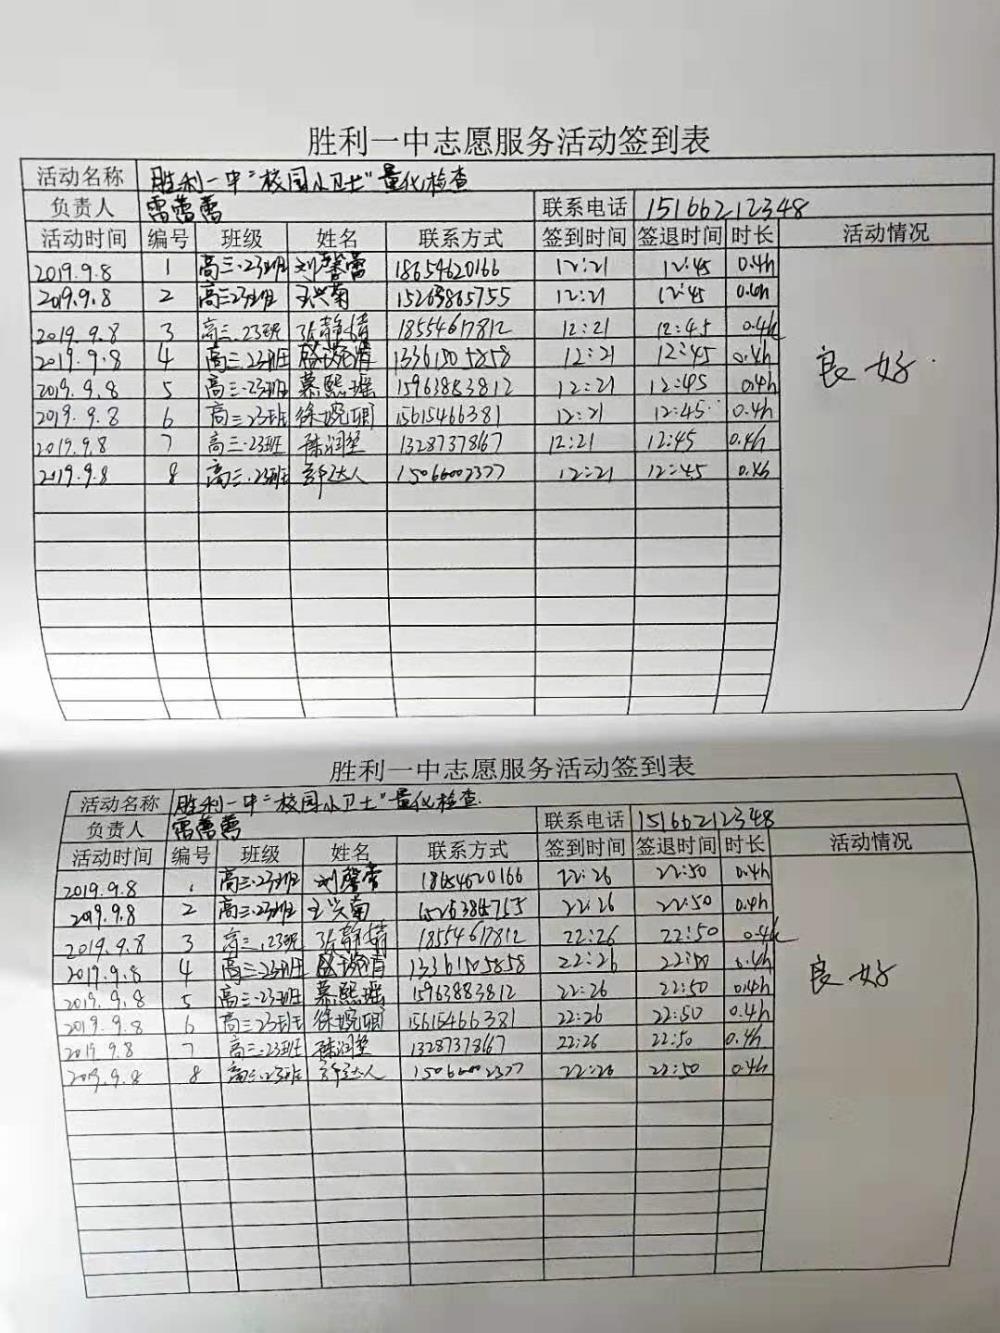 胜利一中志愿服务活动签到表
活动名称 胜利一中“校园小卫士”量化检查
负责人 雷蕾蕾 联系电话 15166212348
活动时间 编号 班级 姓名 联系方式 签到时间 签退时间 时长 活动情况
2019.9.8 1 高三.23班 刘馨蕾 18654620166 12:21 12:45 0.4h
2019.9.8 2 高三23班 王兴菊 15263865755 12:21 12:45 0.4h
2019.9.8 3 高三.23班 张静婧 18554617812 12:21 12:45 0.4h
2019.9.8 4 高三.23班 13361505858 12:21 12:45 0.4h
良好.
2019.9.8 5 高三.23班 慕熙瑶 15963883812 12:21 12:45 0.4h
2019.9.8 6 高三.23班 徐婉玥 15615466381 12:21 12:45 0.4h
2019.9.8 7 高三.23班 陈润莹 13287378167 12:21 12:45 0.4h
2019.9.8 8 高三.23班 15066002377 12:21 12:45 0.4h
胜利一中志愿服务活动签到表
活动名称 胜利一中“校园小卫士”量化检查.
负责人 雷蕾蕾 联系电话 15166212348
活动时间 编号 班级 姓名 联系方式 签到时间 签退时间 时长 活动情况
2019.9.8 1 高三.23班 刘馨蕾 18654620166 22:26 22:50 0.4h
2019.9.8 2 高三.23班 王兴菊 22:26 22:50 0.4h
2019.9.8 3 高三.23班 张静婧 18554617812 22:26 22:50 0.4h
2019.9.8 4 高三.23班 13361505858 22:26 22:50 0.4h
良好
2019.9.8 5 高三.23班 慕熙瑶 15963883812 22:26 22:50 0.4h
2019.9.8 6 高三.23班 徐婉玥 15615466381 22:26 22:50 0.4h
2019.9.8 7 高三.23班 陈润莹 13287378167 22:26 22:50 0.4h
2019.9.8 8 高三.23班 15066002377 22:26 22:50 0.4h